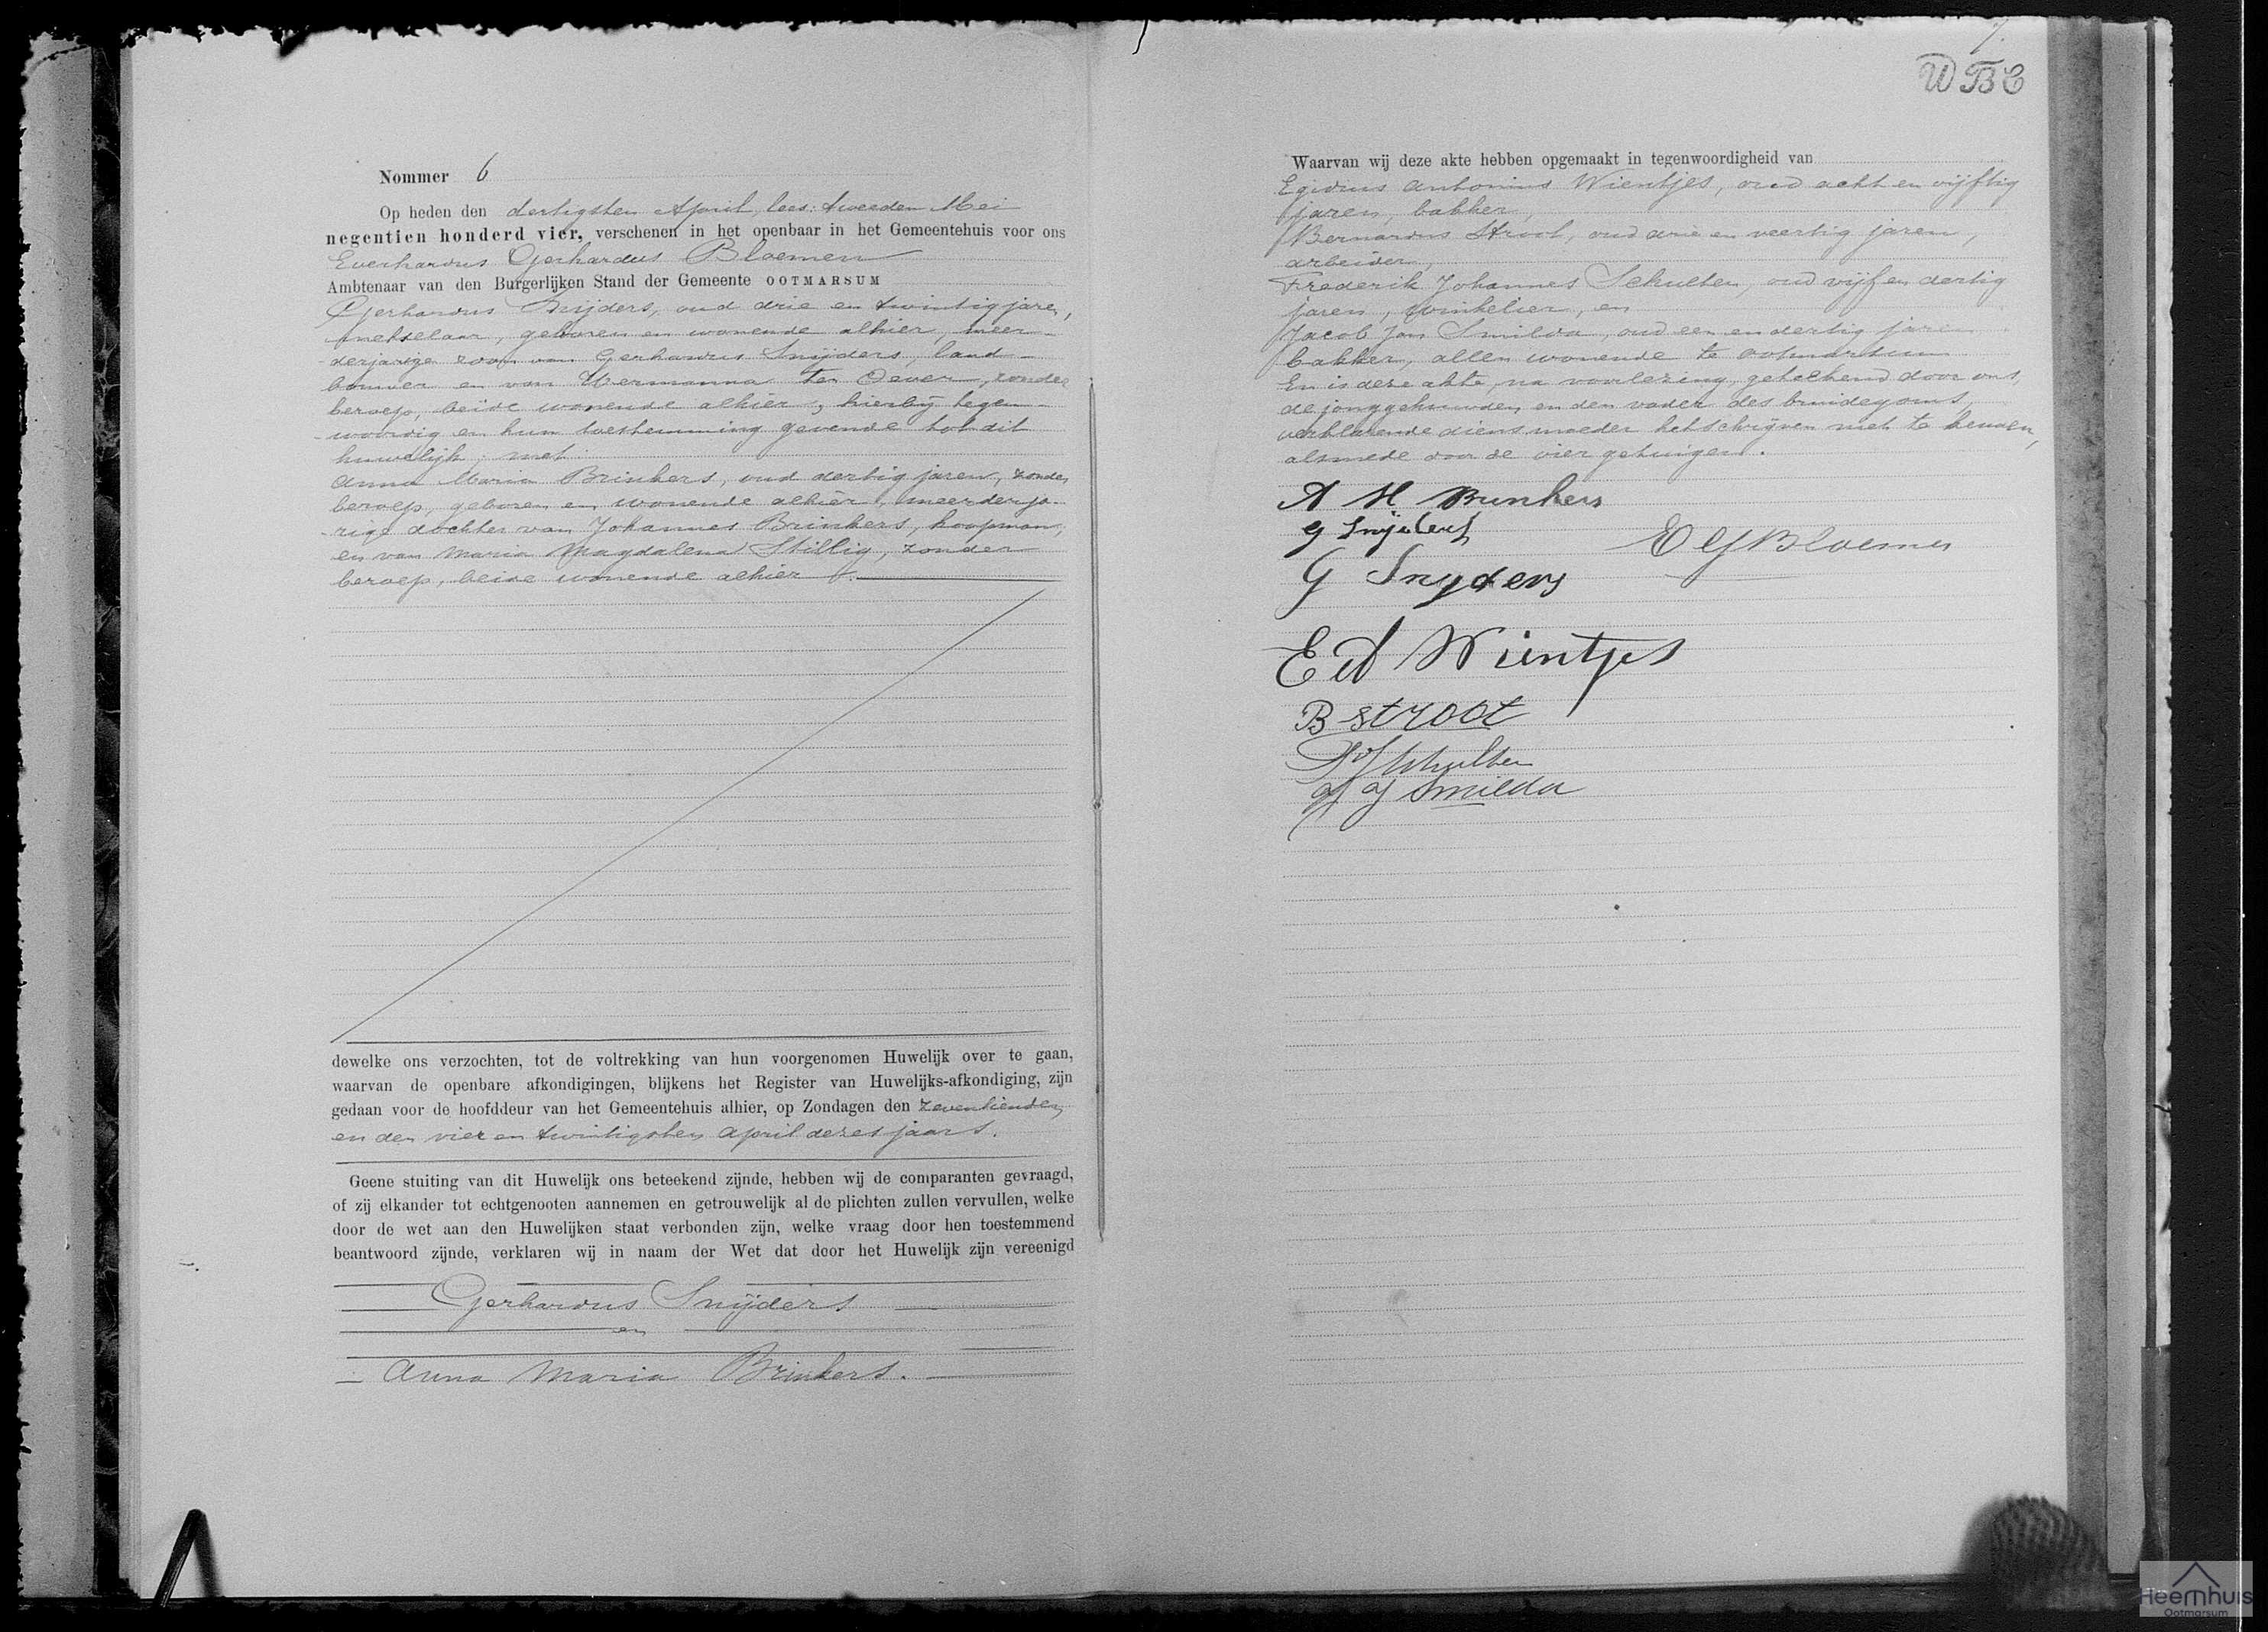 7.
WBC
Nommer 6
Op heden den dertigsten April, lees: tweeden Mei
negentien honderd vier, verschenen in het openbaar in het Gemeentehuis voor ons
Everhardus Gerhardus Bloemen
Ambtenaar van den Burgerlijken Stand der Gemeente OOTMARSUM
Gerhardus Snijders, oud drie en twintig jaren,
metselaar, geboren en wonende alhier, meer-
derjarige zoon van Gerhardus Snijders, land-
bouwer en van Hermanna ten Oever, zonder
beroep, beide wonende alhier, hierbij tegen-
woordig en hun toestemming gevende tot dit
huwelijk; met
Anna Maria Brinkers, oud dertig jaren, zonder
beroep, geboren en wonende alhier, meerderja-
rige dochter van Johannes Brinkers, koopman,
en van Maria Magdalena Stillig, zonder
beroep, beide wonende alhier
dewelke ons verzochten, tot de voltrekking van hun voorgenomen Huwelijk over te gaan,
waarvan de openbare afkondigingen, blijkens het Register van Huwelijks-afkondiging, zijn
gedaan voor de hoofddeur van het Gemeentehuis alhier, op Zondagen den zeventienden
en den vier en twintigsten April dezes jaars.
Geene stuiting van dit Huwelijk ons beteekend zijnde, hebben wij de comparanten gevraagd,
of zij elkander tot echtgenooten aannemen en getrouwelijk al de plichten zullen vervullen, welke
door de wet aan den Huwelijken staat verbonden zijn, welke vraag door hen toestemmend
beantwoord zijnde, verklaren wij in naam der Wet dat door het Huwelijk zijn vereenigd
Gerhardus Snijders
en
Anna Maria Brinkers.
Waarvan wij deze akte hebben opgemaakt in tegenwoordigheid van
Egidius Antonius Wientjes, oud acht en vijftig
jaren, bakker,
Bernardus Stroot, oud drie en veertig jaren,
arbeider,
Frederik Johannes Schulten, oud vijf en dertig
jaren, winkelier, en
Jacob Jan Smilda, oud een en dertig jaren
bakker, allen wonende te Ootmarsum
En is deze akte, na voorlezing, geteekend door ons,
de jonggehuwden en den vader des bruidegoms,
verklarende diens moeder het schrijven niet te kennen,
alsmede door de vier getuigen.
A M Brinkers
G Snijders
E G Bloemen
G Snyders
E A Wientjes
B Stroot
F J Schulten
J J Smilda
Heemhuis
Ootmarsum